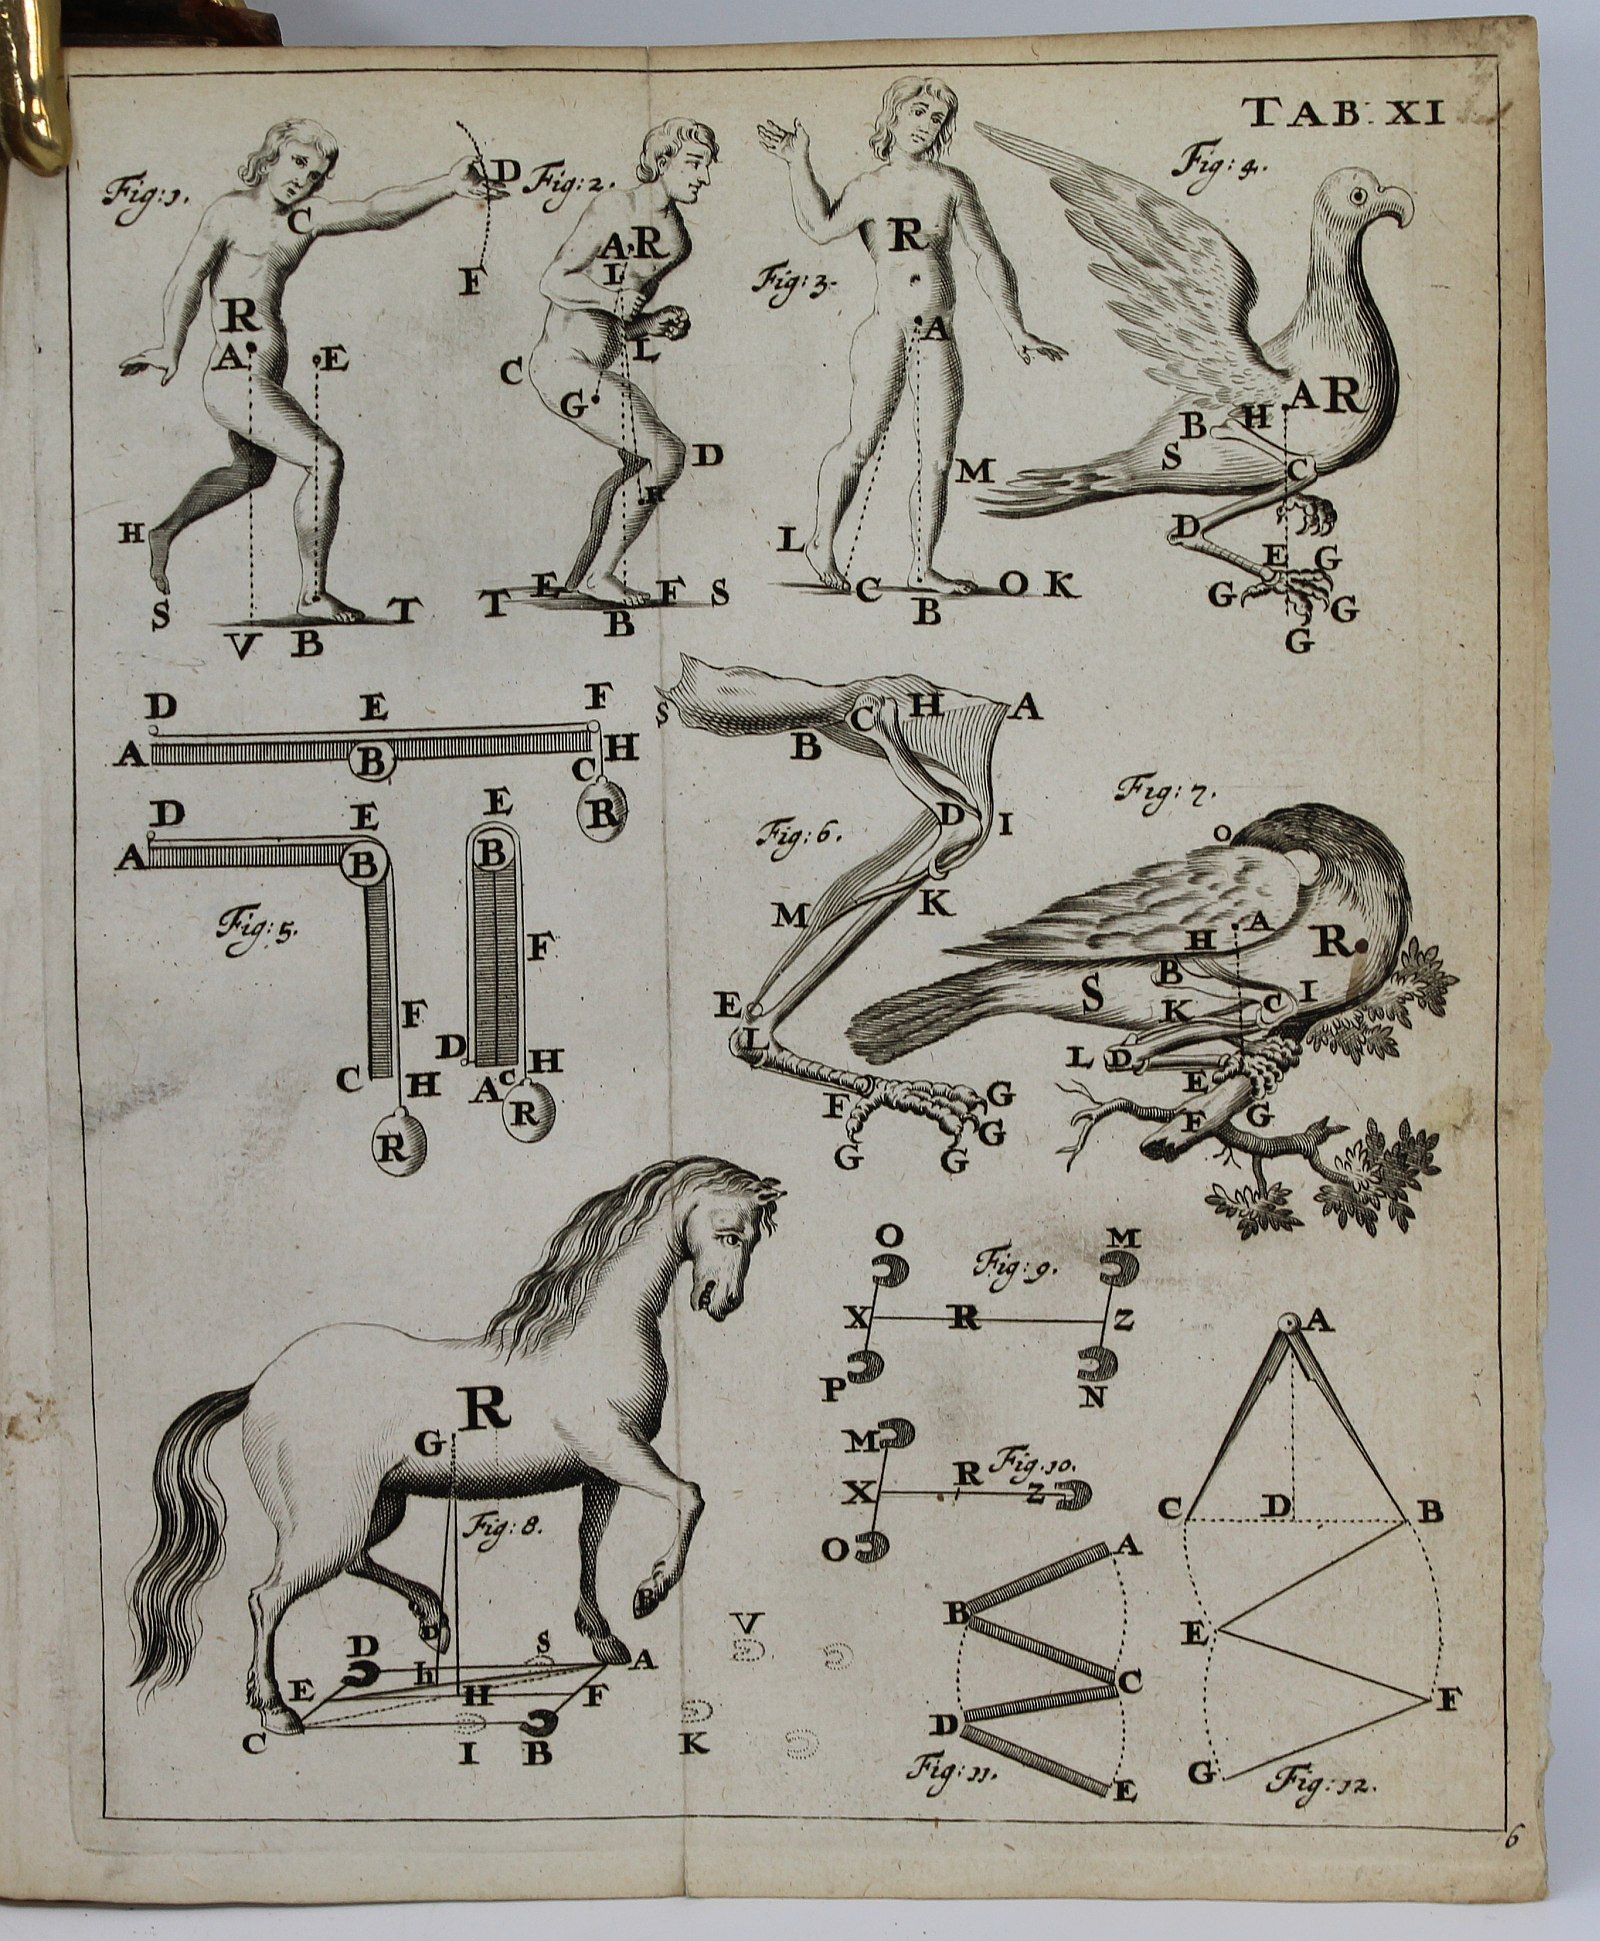 TAB. XI
Fig: 1.
C
D
F
R
A
E
H
S
V
B
T
Fig: 2.
A R
I
L
C
G
D
T
E
F
S
B
Fig: 3.
R
A
M
L
C
B
O K
Fig: 4.
A R
B
H
S
C
D
E
G
G
G
G
D E F
A B C H
R
D E
A B
F
C H
R
E
B
F
D
A C H
R
Fig: 5.
S
B
C
H
A
D
I
Fig: 6.
M
K
E
L
F
G
G
G
G
Fig: 7.
O
A
H
R
B
S
K
C
I
L D
E
F
G
R
G
Fig: 8.
B
D
D
h
S
A
E
H
F
C
I
B
V
K
O M
Fig: 9.
X R Z
P N
M
Fig. 10.
X R Z
O
A
B
C
D
E
Fig: 11.
A
C D B
E
F
G
Fig: 12.
6